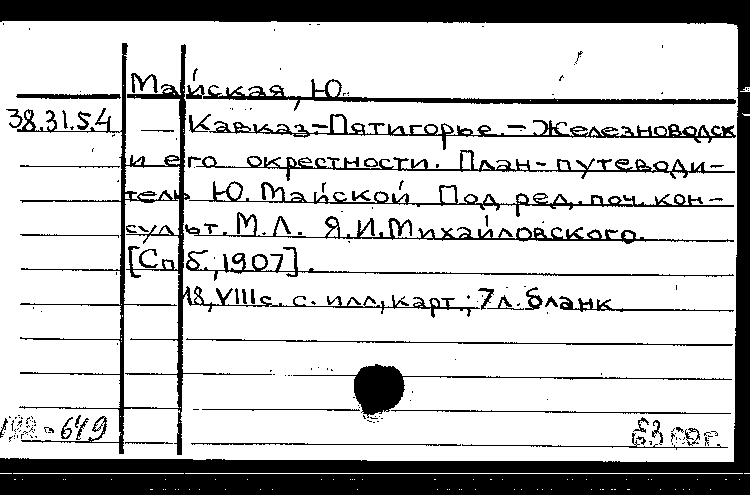 Майская, Ю.
38.31.5.4 Кавказ-Пятигорье. - Железноводск
и его окрестности. План-путеводи-
тель Ю. Майской. Под ред. поч. кон-
сульт. М.Л. Я.И. Михайловского.
[Спб., 1907].
18, VIII с. с илл., карт.; 7 л. бланк.
649